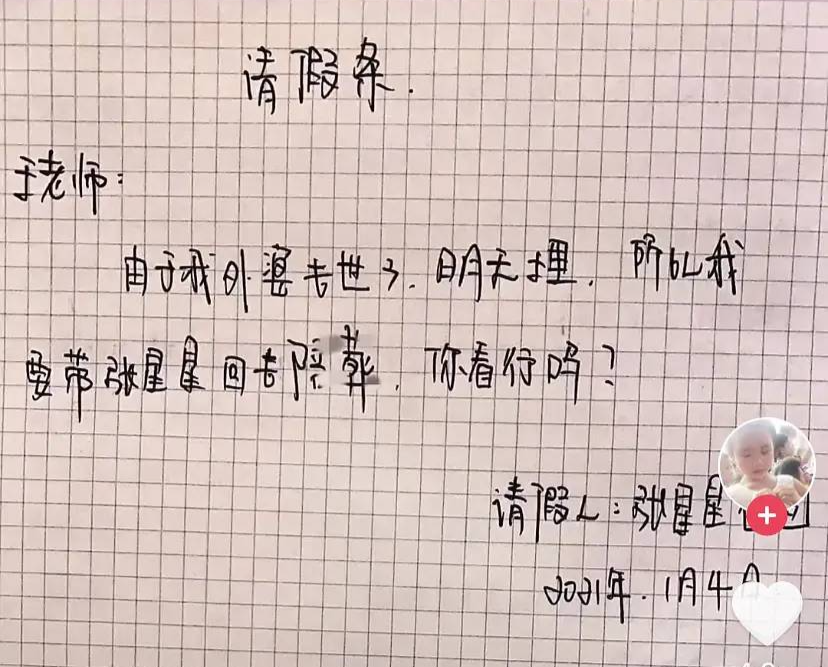 请假条.
于老师:
由于我外婆去世了.明天埋.所以我
要带张星星回去陪葬.你看行吗?
请假人:张星星
2021年.1月4日